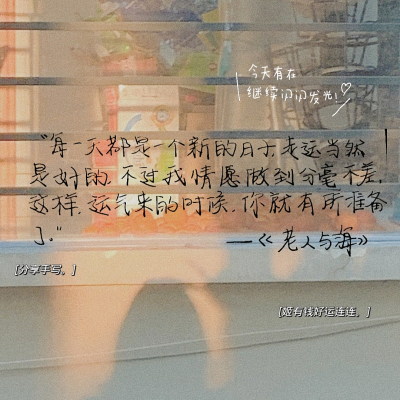 今天有在
继续闪闪发光!♡
“每一天都是一个新的日子,走运当然
是好的,不过我情愿做到分毫不差,
这样,运气来的时候,你就有所准备
了。”
——《老人与海》
[分享手写。]
[姬有钱好运连连。]